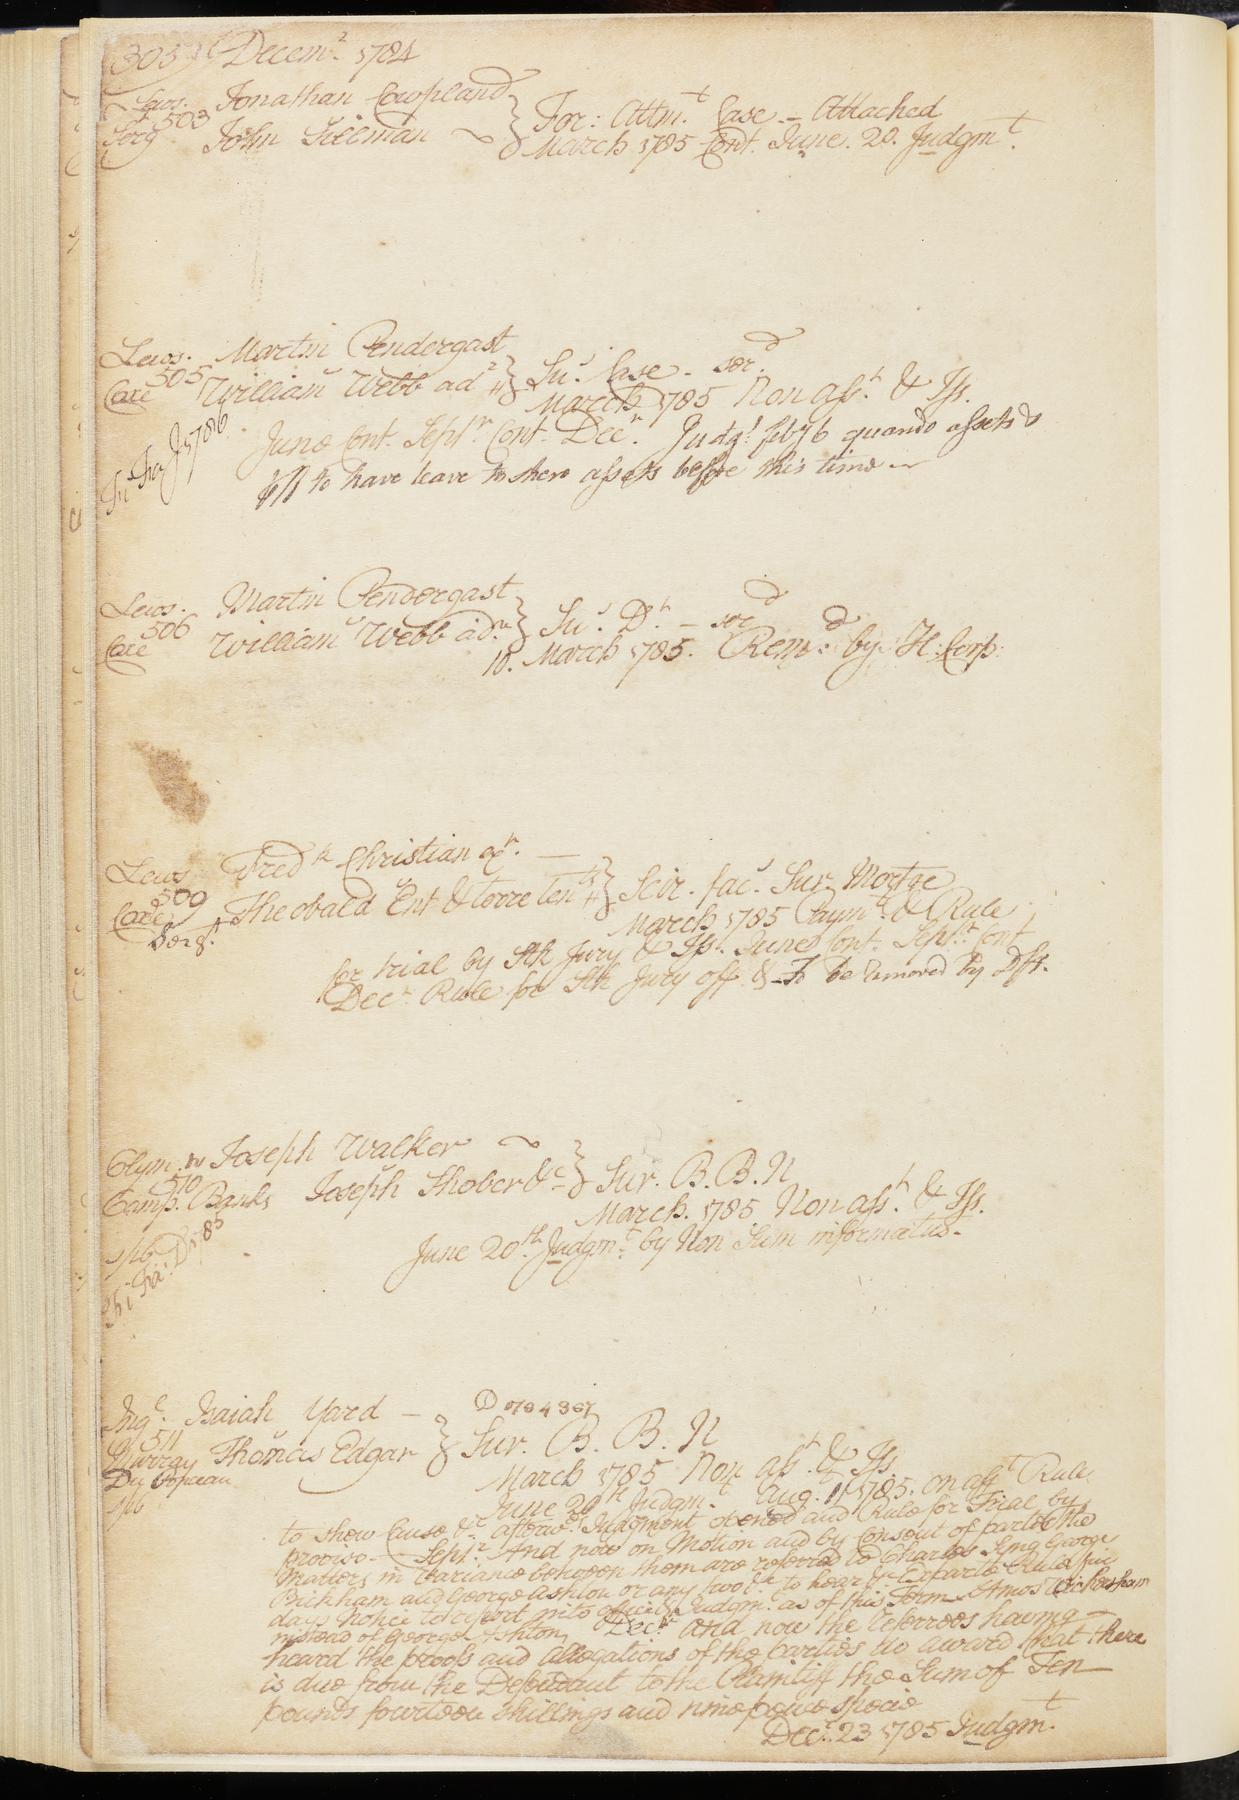 303 Decemr. 1784
Lewis. Jonathan Cowpland
503 John Sileman
Serg } For: Attmt. Case — Attached
March 1785 Cont. June. 20. Judgmt.
Lewis. Martin Pendergast
505 William Webb adr. } Su: Case — ser.d
Care March 1785 Non asst. & Iss.
June Cont. Septr. Cont. Decr. Judgt. feby 6 quando assets
plff to have leave to shew assets before this time
Lewis. Martin Pendergast
506 William Webb adr. } Su: Do. — ser.d
Care 10. March 1785. Remd. by H. Corp.
Lewis Fredk. Christian exr. —
509 Theobald Ent & terre tents } Scir. fac. Sur Mortge
Care March 1785 Paymt. & Rule
Sergt.
for trial by Stk Jury & Iss. June Cont. Septr. Cont
Decr. Rule for Stk Jury off & To be removed by Dfts.
Clym. Joseph Walker
510 Joseph Shober &c } Sur. B. B. N
Camp. Banks
March. 1785 Non asst. & Iss.
spb
June 20th. Judgmt. by Non Sum informatus.
Fi: Fa: D 1785
Ingl. Isaiah Yard — D 0704367
511 Thomas Edgar } Sur. B. B. N
Murray
March 1785 Non asst. & Iss.
spb
June 20th Judgmt. Aug. 11 1785. on afft Rule
to shew Cause &c afterwds. Judgment opened and Rule for Trial by
proviso — Septr. And now on Motion and by Consent of parties the
Matters in variance between them are referred to Charles King George
Bickham and George Ashton or any two &c to hear &c Exparte Rule six
days Notice to report into office & Judgmt. as of this Term Amos Wickersham
instead of George Ashton, Decr. And now the Referrees having —
heard the proofs and allegations of the parties do award that there
is due from the Defendant to the Plaintiff the Sum of Ten
pounds fourteen shillings and nine pence specie
Decr. 23 1785 Judgmt.